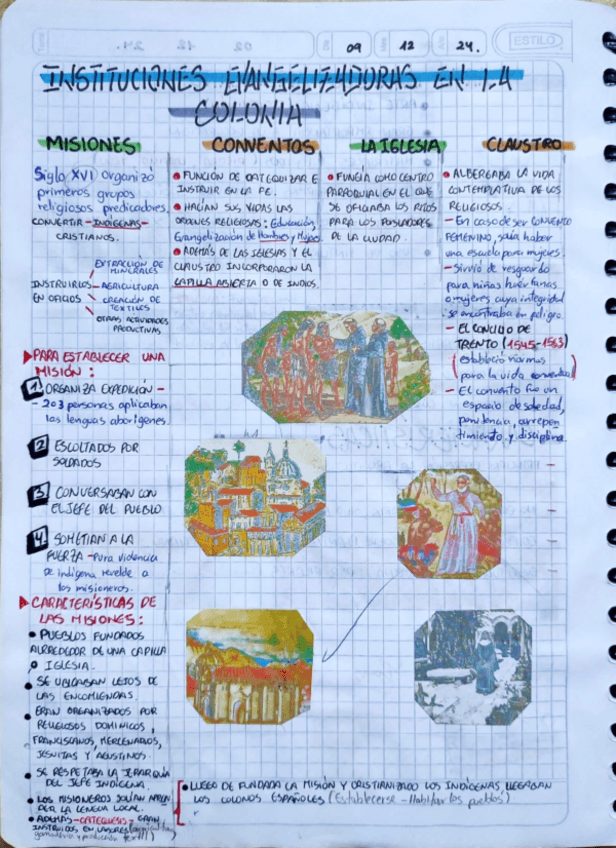 09 12 24.
ESTILO
INSTITUCIONES EVANGELIZADORAS EN LA
COLONIA
MISIONES
Siglo XVI Organizo
primeros grupos
religiosos predicadores.
CONVERTIR - INDÍGENAS -
CRISTIANOS.
INSTRUIRLOS
EN OFICIOS
EXTRACCIÓN DE
MINERALES
AGRICULTURA
CREACIÓN DE
TEXTILES
OTRAS ACTIVIDADES
PRODUCTIVAS
PARA ESTABLECER UNA
MISIÓN:
1 ORGANIZA EXPEDICIÓN -
- 2 o 3 personas aplicaban
las lenguas aborígenes.
2 ESCOLTADOS POR
SOLDADOS
3 CONVERSABAN CON
EL JEFE DEL PUEBLO
4. SOMETIAN A LA
FUERZA - Pura violencia
de indigena revelde a
los misioneros.
CARACTERÍSTICAS DE
LAS MISIONES:
• PUEBLOS FUNDADOS
ALREDEDOR DE UNA CAPILLA
O IGLESIA.
• SE UBICABAN LEJOS DE
LAS ENCOMIENDAS.
• ERAN ORGANIZADOS POR
RELIGIOSOS DOMINICOS,
FRANCISCANOS, MERCENARIOS,
JESUITAS Y AGUSTINOS.
• SE RESPETABA LA JERARQUÍA
DEL JEFE INDÍGENA.
• LOS MISIONEROS SOLÍAN APREN
DER LA LENGUA LOCAL.
• ADEMÁS - CATEQUESIS - ERAN
INSTRUIDOS EN LABORES
CONVENTOS
• FUNCIÓN DE CATEQUIZAR E
INSTRUIR EN LA FE.
• HACÍAN SUS VIDAS LAS
ORDENES RELIGIOSAS: Educación,
Evangelización de Hombres y Mujeres
• ADEMÁS DE LAS IGLESIAS Y EL
CLAUSTRO INCORPORARON LA
CAPILLA ABIERTA O DE INDIOS.
LA IGLESIA
• FUNGÍA COMO CENTRO
PARROQUIAL EN EL QUE
SE OFICIABA LOS RITOS
PARA LOS POBLADORES
DE LA CIUDAD.
CLAUSTRO
• ALBERGABA LA VIDA
CONTEMPLATIVA DE LOS
RELIGIOSOS.
- En caso de ser CONVENTO
FEMENINO, solía haber
una escuela para mujeres.
- Sirvió de resguardo
para niñas huérfanas
o mujeres cuya integridad
se encontraba en peligro.
- EL CONCILIO DE
TRENTO (1545-1563)
(estableció normas
para la vida conventual)
- El convento fue un
espacio de soledad,
penitencia, arrepen
timiento y disciplina.
• LUEGO DE FUNDADA LA MISIÓN Y CRISTIANIZADO LOS INDÍGENAS, LLEGABAN
LOS COLONOS ESPAÑOLES (Establecerse - Habitar los pueblos)